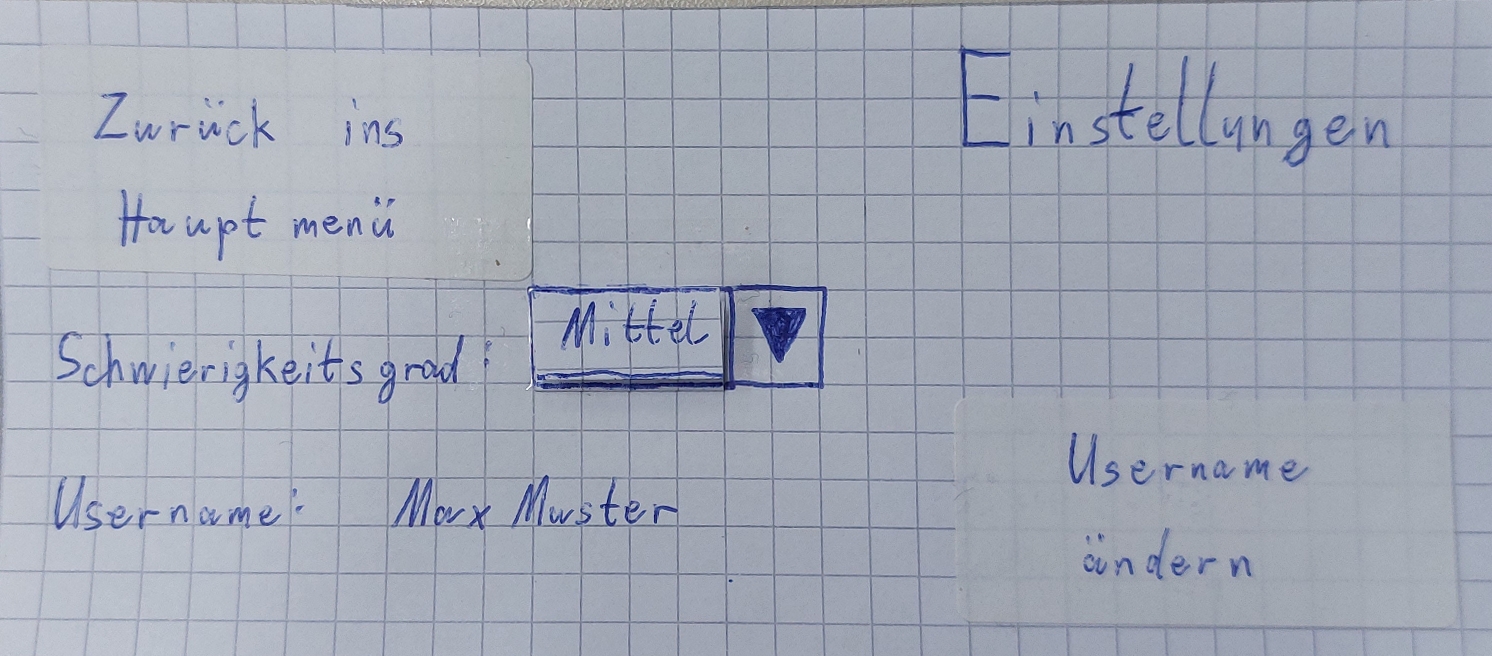 Zurück ins
Hauptmenü
Einstellungen
Schwierigkeitsgrad: Mittel
Username: Max Muster
Username
ändern